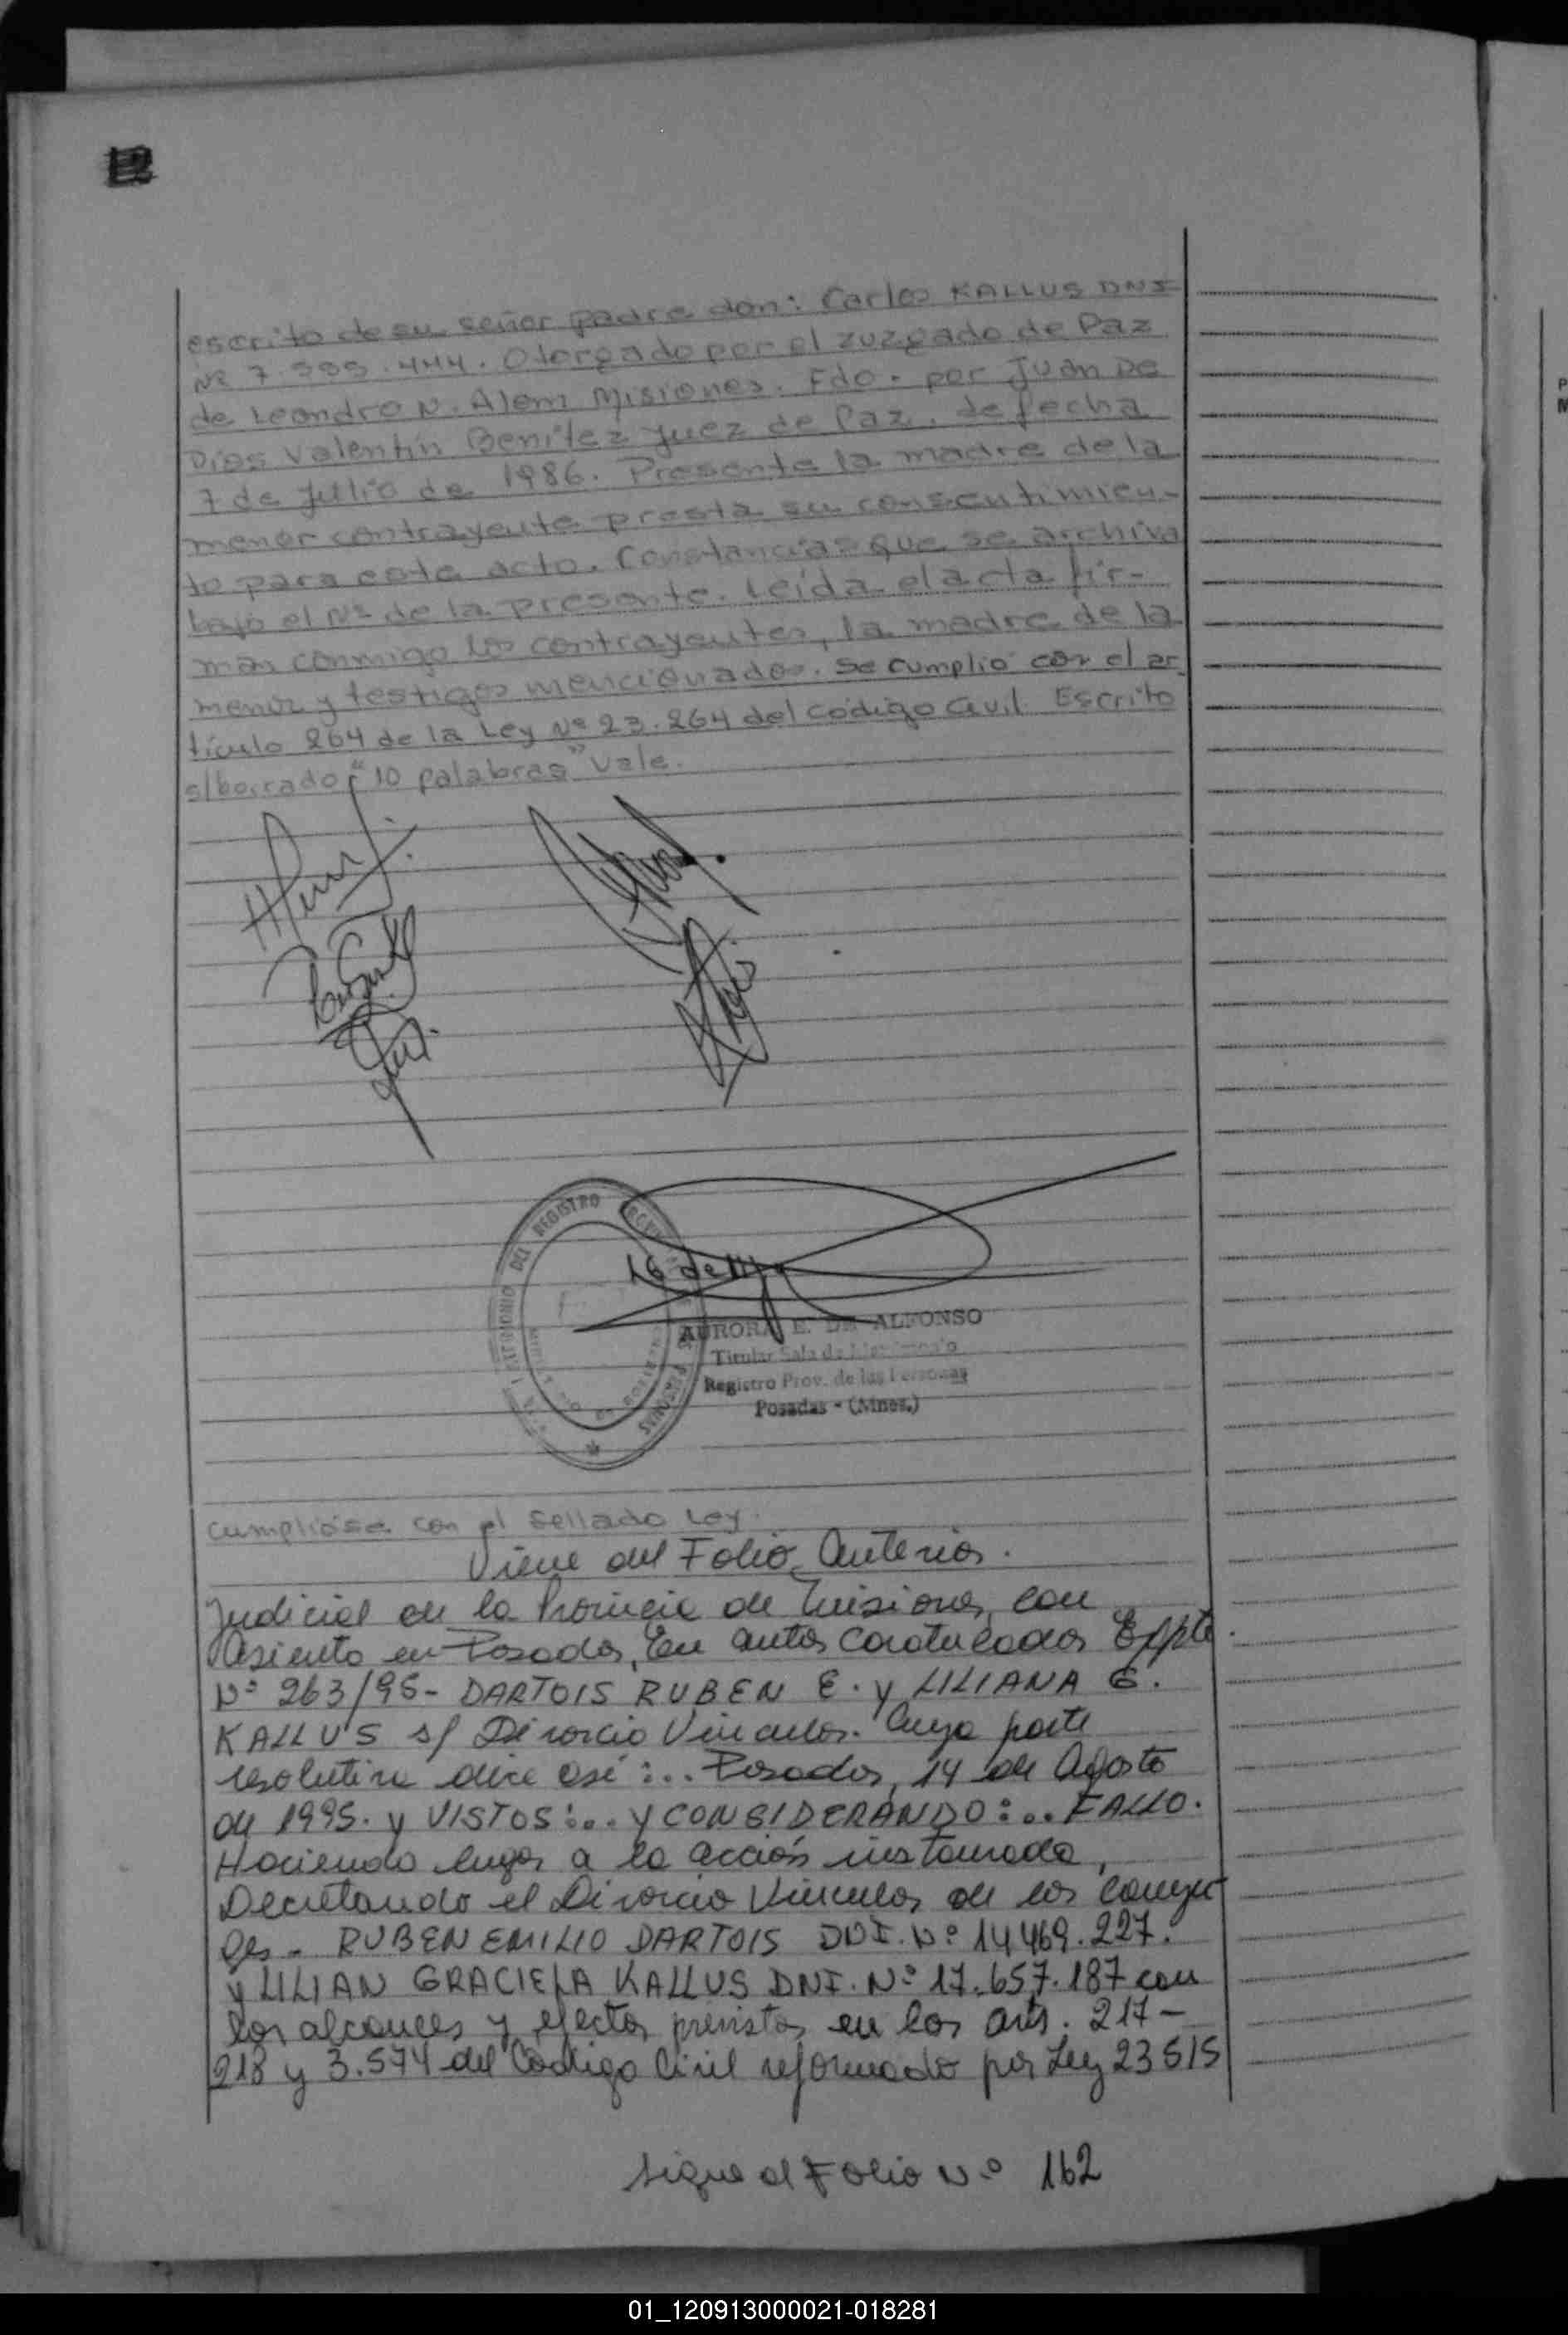 escrito de su señor padre don: Carlos KALLUS DNI
Nº 7.595.444. Otorgado por el Juzgado de Paz
de Leandro N. Alem Misiones. Fdo. por Juan De
Dios Valentín Benitez Juez de Paz. de fecha
7 de Julio de 1986. Presente la madre de la
menor contrayente presta su consentimien-
to para este acto. Constancias que se archiva
bajo el Nº de la presente. Leída el acta fir-
man conmigo los contrayentes, la madre de la
menor y testigos mencionados. Se cumplió con el ar
tículo 264 de la Ley Nº 23.264 del código Civil. Escrito
s/borrado "10 palabras" Vale.
DEL REGISTRO
16 de
AURORA E. DE ALFONSO
Titular Sala de Matrimonio
Registro Prov. de las Personas
Posadas - (Mnes.)
cumpliose con el sellado Ley.
Viene del Folio Anterior.
Judicial de la Provincia de Misiones, con
Asiento en Posadas, En autos Caratulados Expte.
Nº 263/95- DARTOIS RUBEN E. y LILIANA G.
KALLUS s/ Divorcio Vincular. Cuya parte
resolutiva dice así:... Posadas, 14 de Agosto
de 1995. y VISTOS:... y CONSIDERANDO:... FALLO.
Haciendo lugar a la acción instaurada,
Decretando el Divorcio Vincular de los conyu
ges - RUBEN EMILIO DARTOIS DNI. Nº 14.469.227.
y LILIAN GRACIELA KALLUS DNI. Nº 17.657.187 con
los alcances y efectos previstos en los arts. 217-
218 y 3.574 del Código Civil reformado por Ley 23515
sigue al Folio Nº 162
01_120913000021-018281